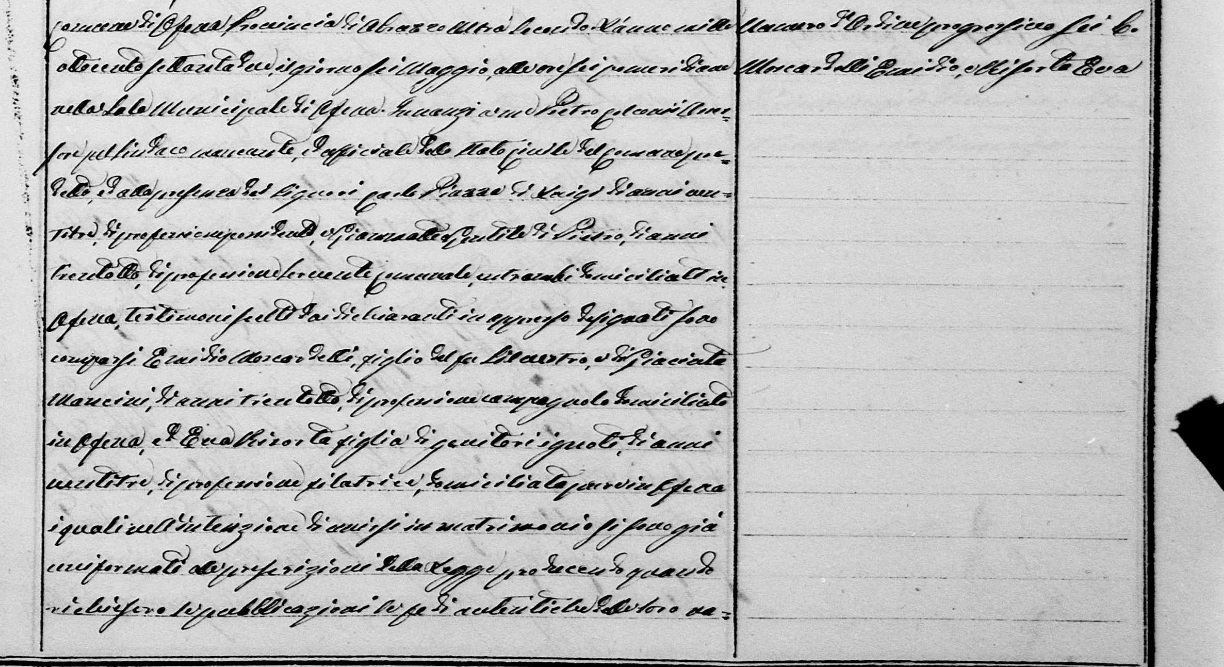 Comune di Ofena Provincia di Abruzzo Ultra Secondo L'anno mille
ottocento settanta due, il giorno sei Maggio, alle ore sei pomeridiane
nella Sala Municipale di Ofena. Innanzi a me Pietro Asses-
sore pel Sindaco mancante, ed officiale dello Stato Civile del Comune pre-
detto, ed alla presenza dei Signori Carlo Piazza di Luigi di anni ven-
titre, di professione possidente, e Gentile di Pietro, di anni
trentotto, di professione servente Comunale, entrambi domiciliati in
Ofena, testimoni scelti dai dichiaranti in appresso designati sono
comparsi Emidio Moscardelli, figlio del fu Silvestro, e di Giacinta
Mancini, di anni trentotto, di professione campagnolo domiciliato
in Ofena, ed Eva Risorta figlia di genitori ignoti, di anni
ventitre, di professione filatrice, domiciliata pure in Ofena
i quali nell'intenzione di unirsi in matrimonio si sono già
uniformati alle prescrizioni della Legge producendo quando
richiesero le pubblicazioni le fedi autentiche delle loro na-
Numero d'Ordine progressivo sei 6.
Moscardelli Emidio, e Risorta Eva